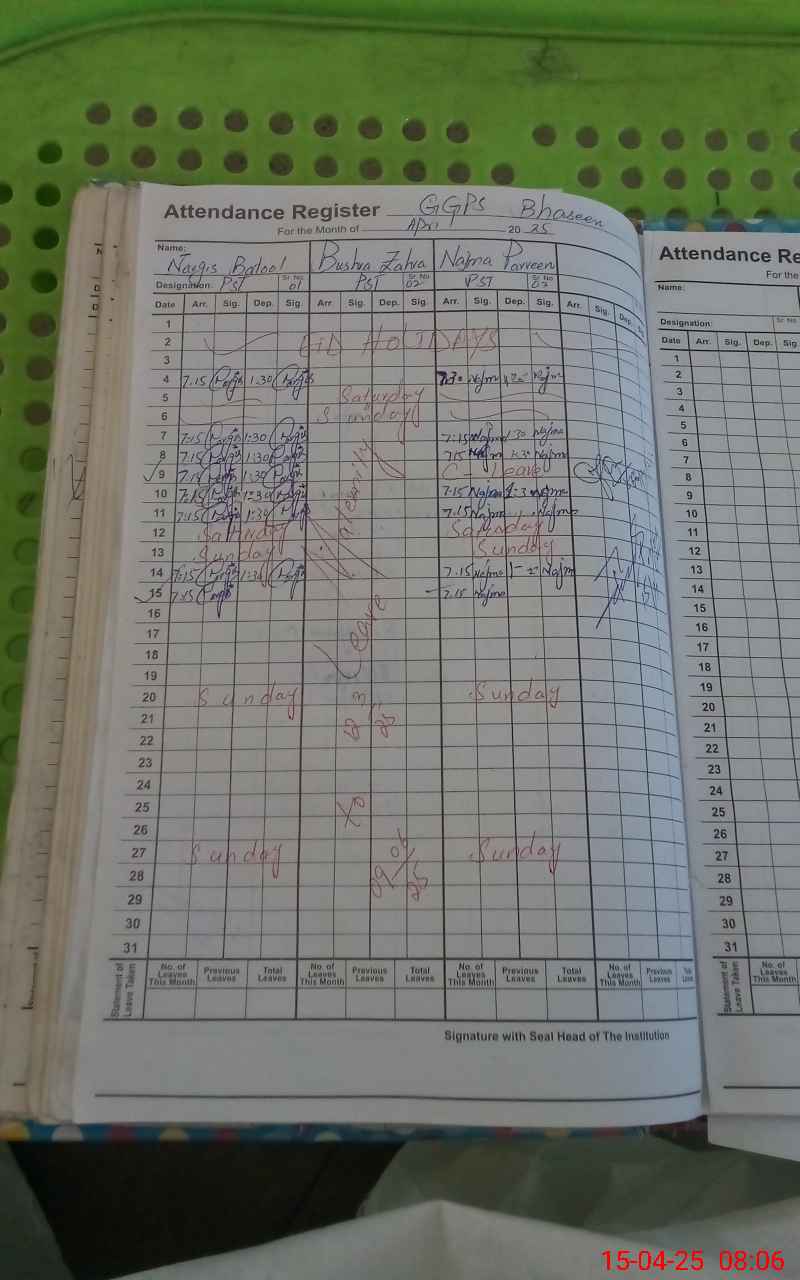 Attendance Register GGPS Bhaseen
For the Month of April 2025
Name: Nargis Batool Bushra Zahra Najma Parveen
Designation: PST Sr. No. 01 PST Sr. No. 02 PST Sr. No. 03
Date Arr. Sig. Dep. Sig. Arr. Sig. Dep. Sig. Arr. Sig. Dep. Sig. Arr. Sig. Dep.
1
2 EID HOLIDAYS
3
4 7:15 1:30 7:30 Najm Najm
5 Saturday
6 Sunday
7 7:15 1:30 7:15 Najm 1:30 Najm
8 7:15 1:30 7:15 Najm 1:30 Najm
9 7:15 1:30 C - Leave
10 7:15 1:30 7.15 Najm 1:3 Najm
11 7:15 1:30 7.15 Najm Najm
12 Saturday Saturday
13 Sunday Sunday
14 7:15 1:30 7.15 Najm Najm
15 7:15 7.15 Najm
16
17
18
19
20 Sunday Sunday
21
22
23
24
25
26
27 Sunday Sunday
28
29
30
31
Maternity
Leave
To
Statement of Leave Taken
No. of Leaves This Month Previous Leaves Total Leaves No. of Leaves This Month Previous Leaves Total Leaves No. of Leaves This Month Previous Leaves Total Leaves No. of Leaves This Month Previous Leaves
Signature with Seal Head of The Institution
Attendance Re
For the
Name:
Designation: Sr. No.
Date Arr. Sig. Dep. Sig.
1
2
3
4
5
6
7
8
9
10
11
12
13
14
15
16
17
18
19
20
21
22
23
24
25
26
27
28
29
30
31
Statement of Leave Taken
No. of Leaves This Month Previous Leaves
15-04-25 08:06